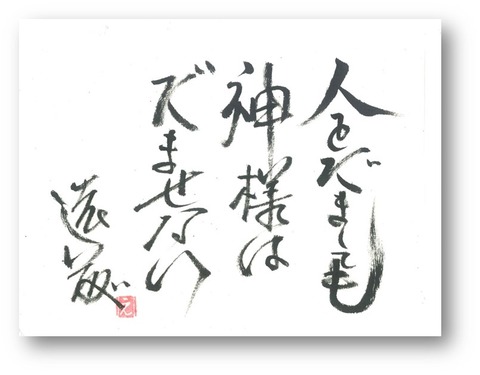 人をだましても
神様は
だませない